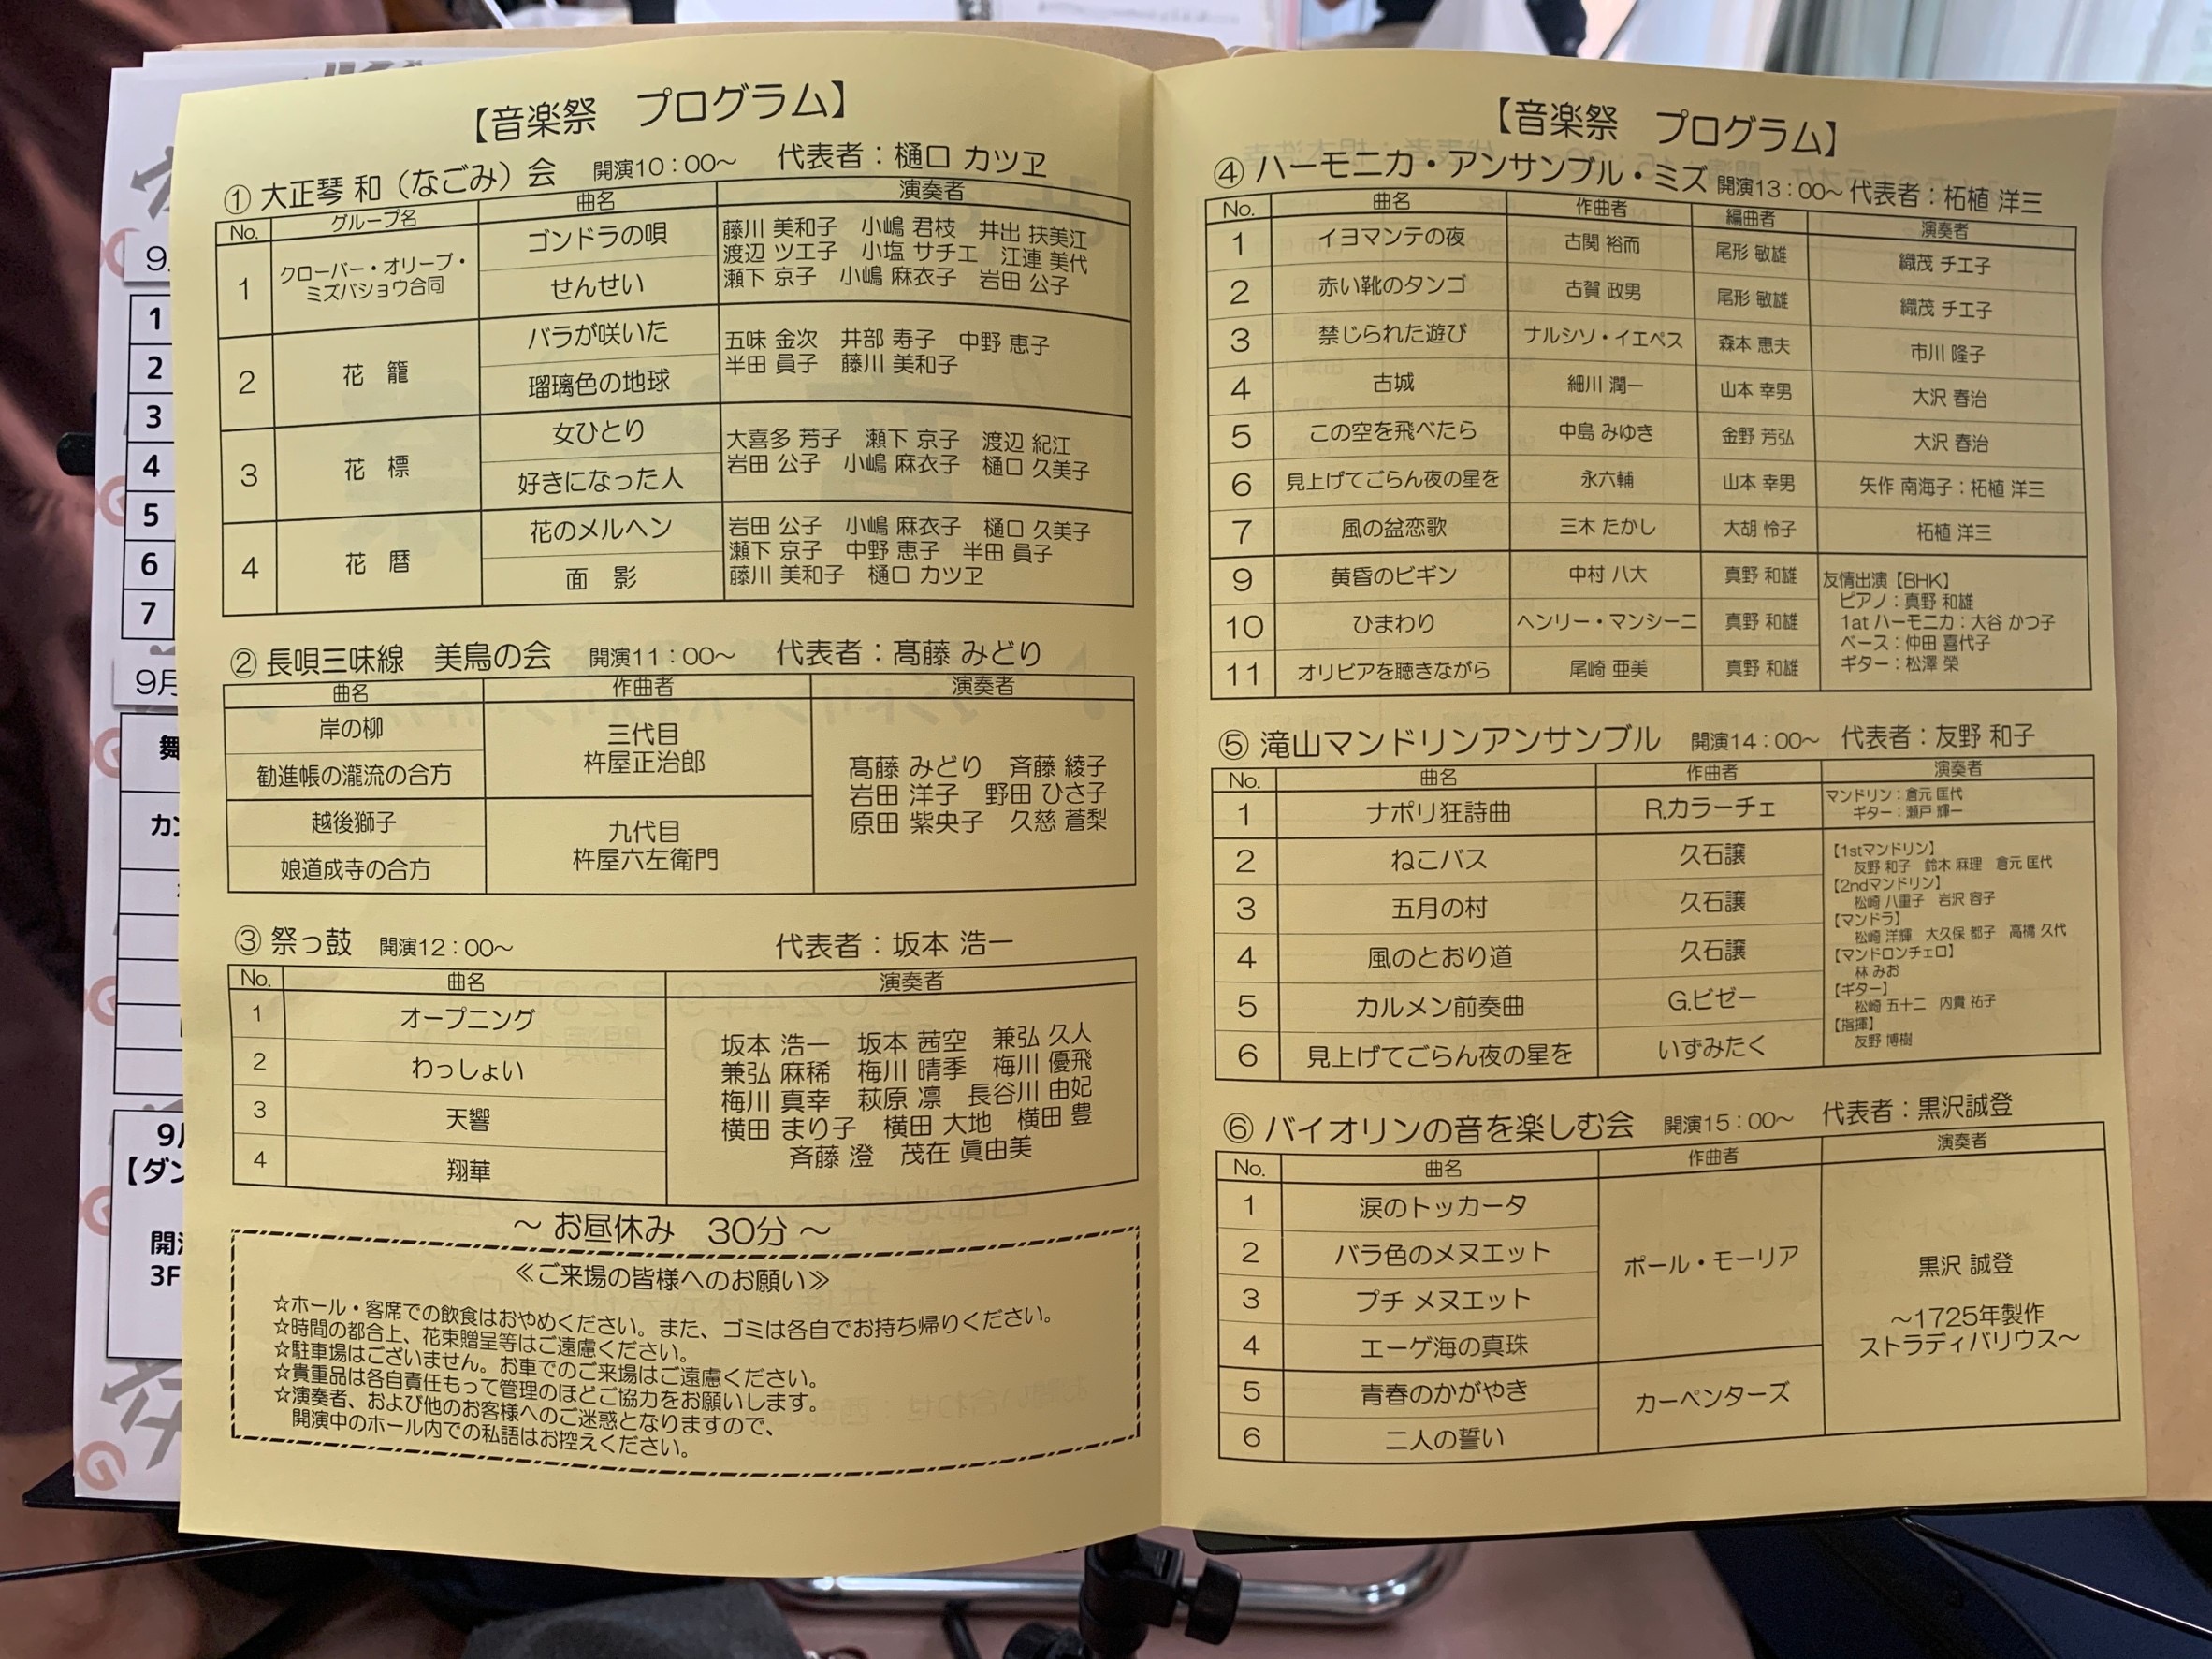 【音楽祭　プログラム】
① 大正琴 和（なごみ）会　開演10：00～　代表者：樋口 カツヱ
No.　グループ名　曲名　演奏者
1　クローバー・オリーブ・
ミズバショウ合同
ゴンドラの唄
せんせい
藤川 美和子　小嶋 君枝　井出 扶美江
渡辺 ツエ子　小塩 サチエ　江連 美代
瀬下 京子　小嶋 麻衣子　岩田 公子
2　花　籠
バラが咲いた
瑠璃色の地球
五味 金次　井部 寿子　中野 恵子
半田 員子　藤川 美和子
3　花　標
女ひとり
好きになった人
大喜多 芳子　瀬下 京子　渡辺 紀江
岩田 公子　小嶋 麻衣子　樋口 久美子
4　花　暦
花のメルヘン
面　影
岩田 公子　小嶋 麻衣子　樋口 久美子
瀬下 京子　中野 恵子　半田 員子
藤川 美和子　樋口 カツヱ
② 長唄三味線　美鳥の会　開演11：00～　代表者：髙藤 みどり
曲名　作曲者　演奏者
岸の柳
勧進帳の瀧流の合方
三代目
杵屋正治郎
越後獅子
娘道成寺の合方
九代目
杵屋六左衛門
髙藤 みどり　斉藤 綾子
岩田 洋子　野田 ひさ子
原田 紫央子　久慈 蒼梨
③ 祭っ鼓　開演12：00～　代表者：坂本 浩一
No.　曲名　演奏者
1　オープニング
2　わっしょい
3　天響
4　翔華
坂本 浩一　坂本 茜空　兼弘 久人
兼弘 麻稀　梅川 晴季　梅川 優飛
梅川 真幸　萩原 凛　長谷川 由妃
横田 まり子　横田 大地　横田 豊
斉藤 澄　茂在 眞由美
～ お昼休み　30分 ～
≪ご来場の皆様へのお願い≫
☆ホール・客席での飲食はおやめください。また、ゴミは各自でお持ち帰りください。
☆時間の都合上、花束贈呈等はご遠慮ください。
☆駐車場はございません。お車でのご来場はご遠慮ください。
☆貴重品は各自責任もって管理のほどご協力をお願いします。
☆演奏者、および他のお客様へのご迷惑となりますので、
開演中のホール内での私語はお控えください。
【音楽祭　プログラム】
④ ハーモニカ・アンサンブル・ミズ　開演13：00～ 代表者：柘植 洋三
No.　曲名　作曲者　編曲者　演奏者
1　イヨマンテの夜　古関 裕而　尾形 敏雄　織茂 チエ子
2　赤い靴のタンゴ　古賀 政男　尾形 敏雄　織茂 チエ子
3　禁じられた遊び　ナルシソ・イエペス　森本 恵夫　市川 隆子
4　古城　細川 潤一　山本 幸男　大沢 春治
5　この空を飛べたら　中島 みゆき　金野 芳弘　大沢 春治
6　見上げてごらん夜の星を　永六輔　山本 幸男　矢作 南海子：柘植 洋三
7　風の盆恋歌　三木 たかし　大胡 怜子　柘植 洋三
9　黄昏のビギン　中村 八大　真野 和雄
10　ひまわり　ヘンリー・マンシーニ　真野 和雄
11　オリビアを聴きながら　尾崎 亜美　真野 和雄
友情出演【BHK】
ピアノ：真野 和雄
1at ハーモニカ：大谷 かつ子
ベース：仲田 喜代子
ギター：松澤 榮
⑤ 滝山マンドリンアンサンブル　開演14：00～　代表者：友野 和子
No.　曲名　作曲者　演奏者
1　ナポリ狂詩曲　R.カラーチェ
マンドリン：倉元 匡代
ギター：瀬戸 輝一
2　ねこバス　久石譲
3　五月の村　久石譲
4　風のとおり道　久石譲
5　カルメン前奏曲　G.ビゼー
6　見上げてごらん夜の星を　いずみたく
【1stマンドリン】
友野 和子　鈴木 麻理　倉元 匡代
【2ndマンドリン】
松崎 八重子　岩沢 容子
【マンドラ】
松崎 洋輝　大久保 都子　高橋 久代
【マンドロンチェロ】
林 みお
【ギター】
松崎 五十二　内貴 祐子
【指揮】
友野 博樹
⑥ バイオリンの音を楽しむ会　開演15：00～　代表者：黒沢誠登
No.　曲名　作曲者　演奏者
1　涙のトッカータ
2　バラ色のメヌエット
3　プチ メヌエット
4　エーゲ海の真珠
ポール・モーリア
5　青春のかがやき
6　二人の誓い
カーペンターズ
黒沢 誠登
～1725年製作
ストラディバリウス～
1
2
3
4
5
6
7
9月
【ダン
3F